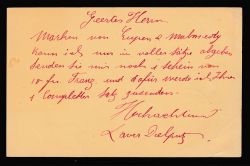 Geertes Herrn
Marken von Eupen & Malmedy
kann ich nur in voller Sätze abgeben
Senden Sie mir noch 1 schein von
10 fr. Franz und dafür werde ich Ihnen
1 Completter Satz zusenden.
Hochachtend